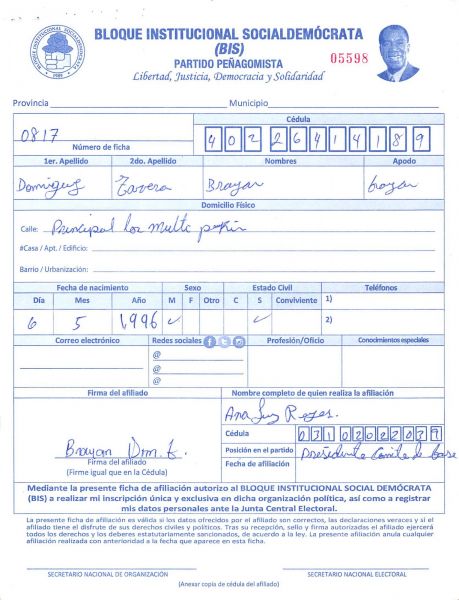 BLOQUE INSTITUCIONAL SOCIALDEMÓCRATA
(BIS)
PARTIDO PEÑAGOMISTA
Libertad, Justicia, Democracia y Solidaridad
05598
BLOQUE INSTITUCIONAL SOCIALDEMOCRATA
Provincia Municipio
0817
Número de ficha
Cédula
40226414189
1er. Apellido 2do. Apellido Nombres Apodo
Dominguez Tavera Brayan brayan
Domicilio Físico
Calle: Principal los multi
#Casa / Apt. / Edificio:
Barrio / Urbanización:
Fecha de nacimiento Sexo Estado Civil Teléfonos
Día Mes Año M F Otro C S Conviviente 1)
6 5 1,996 ✓ ✓ 2)
Correo electrónico Redes sociales Profesión/Oficio Conocimientos especiales
@
@
@
Firma del afiliado Nombre completo de quien realiza la afiliación
Ana Luz Reyes.
Cédula 03102022079
Brayan Dom. t.
Firma del afiliado
(Firme igual que en la Cédula)
Posición en el partido presidenta Comite de base
Fecha de afiliación
Mediante la presente ficha de afiliación autorizo al BLOQUE INSTITUCIONAL SOCIAL DEMÓCRATA
(BIS) a realizar mi inscripción única y exclusiva en dicha organización política, así como a registrar
mis datos personales ante la Junta Central Electoral.
La presente ficha de afiliación es válida si los datos ofrecidos por el afiliado son correctos, las declaraciones veraces y si el
afiliado tiene el disfrute de sus derechos civiles y políticos. Tras su recepción, sello y firma autorizadas el afiliado ejercerá
todos los derechos y los deberes estatutariamente sancionados, de acuerdo a la ley. La presente afiliación anula cualquier
afiliación realizada con anterioridad a la fecha que aparece en esta ficha.
SECRETARIO NACIONAL DE ORGANIZACIÓN SECRETARIO NACIONAL ELECTORAL
(Anexar copia de cédula del afiliado)